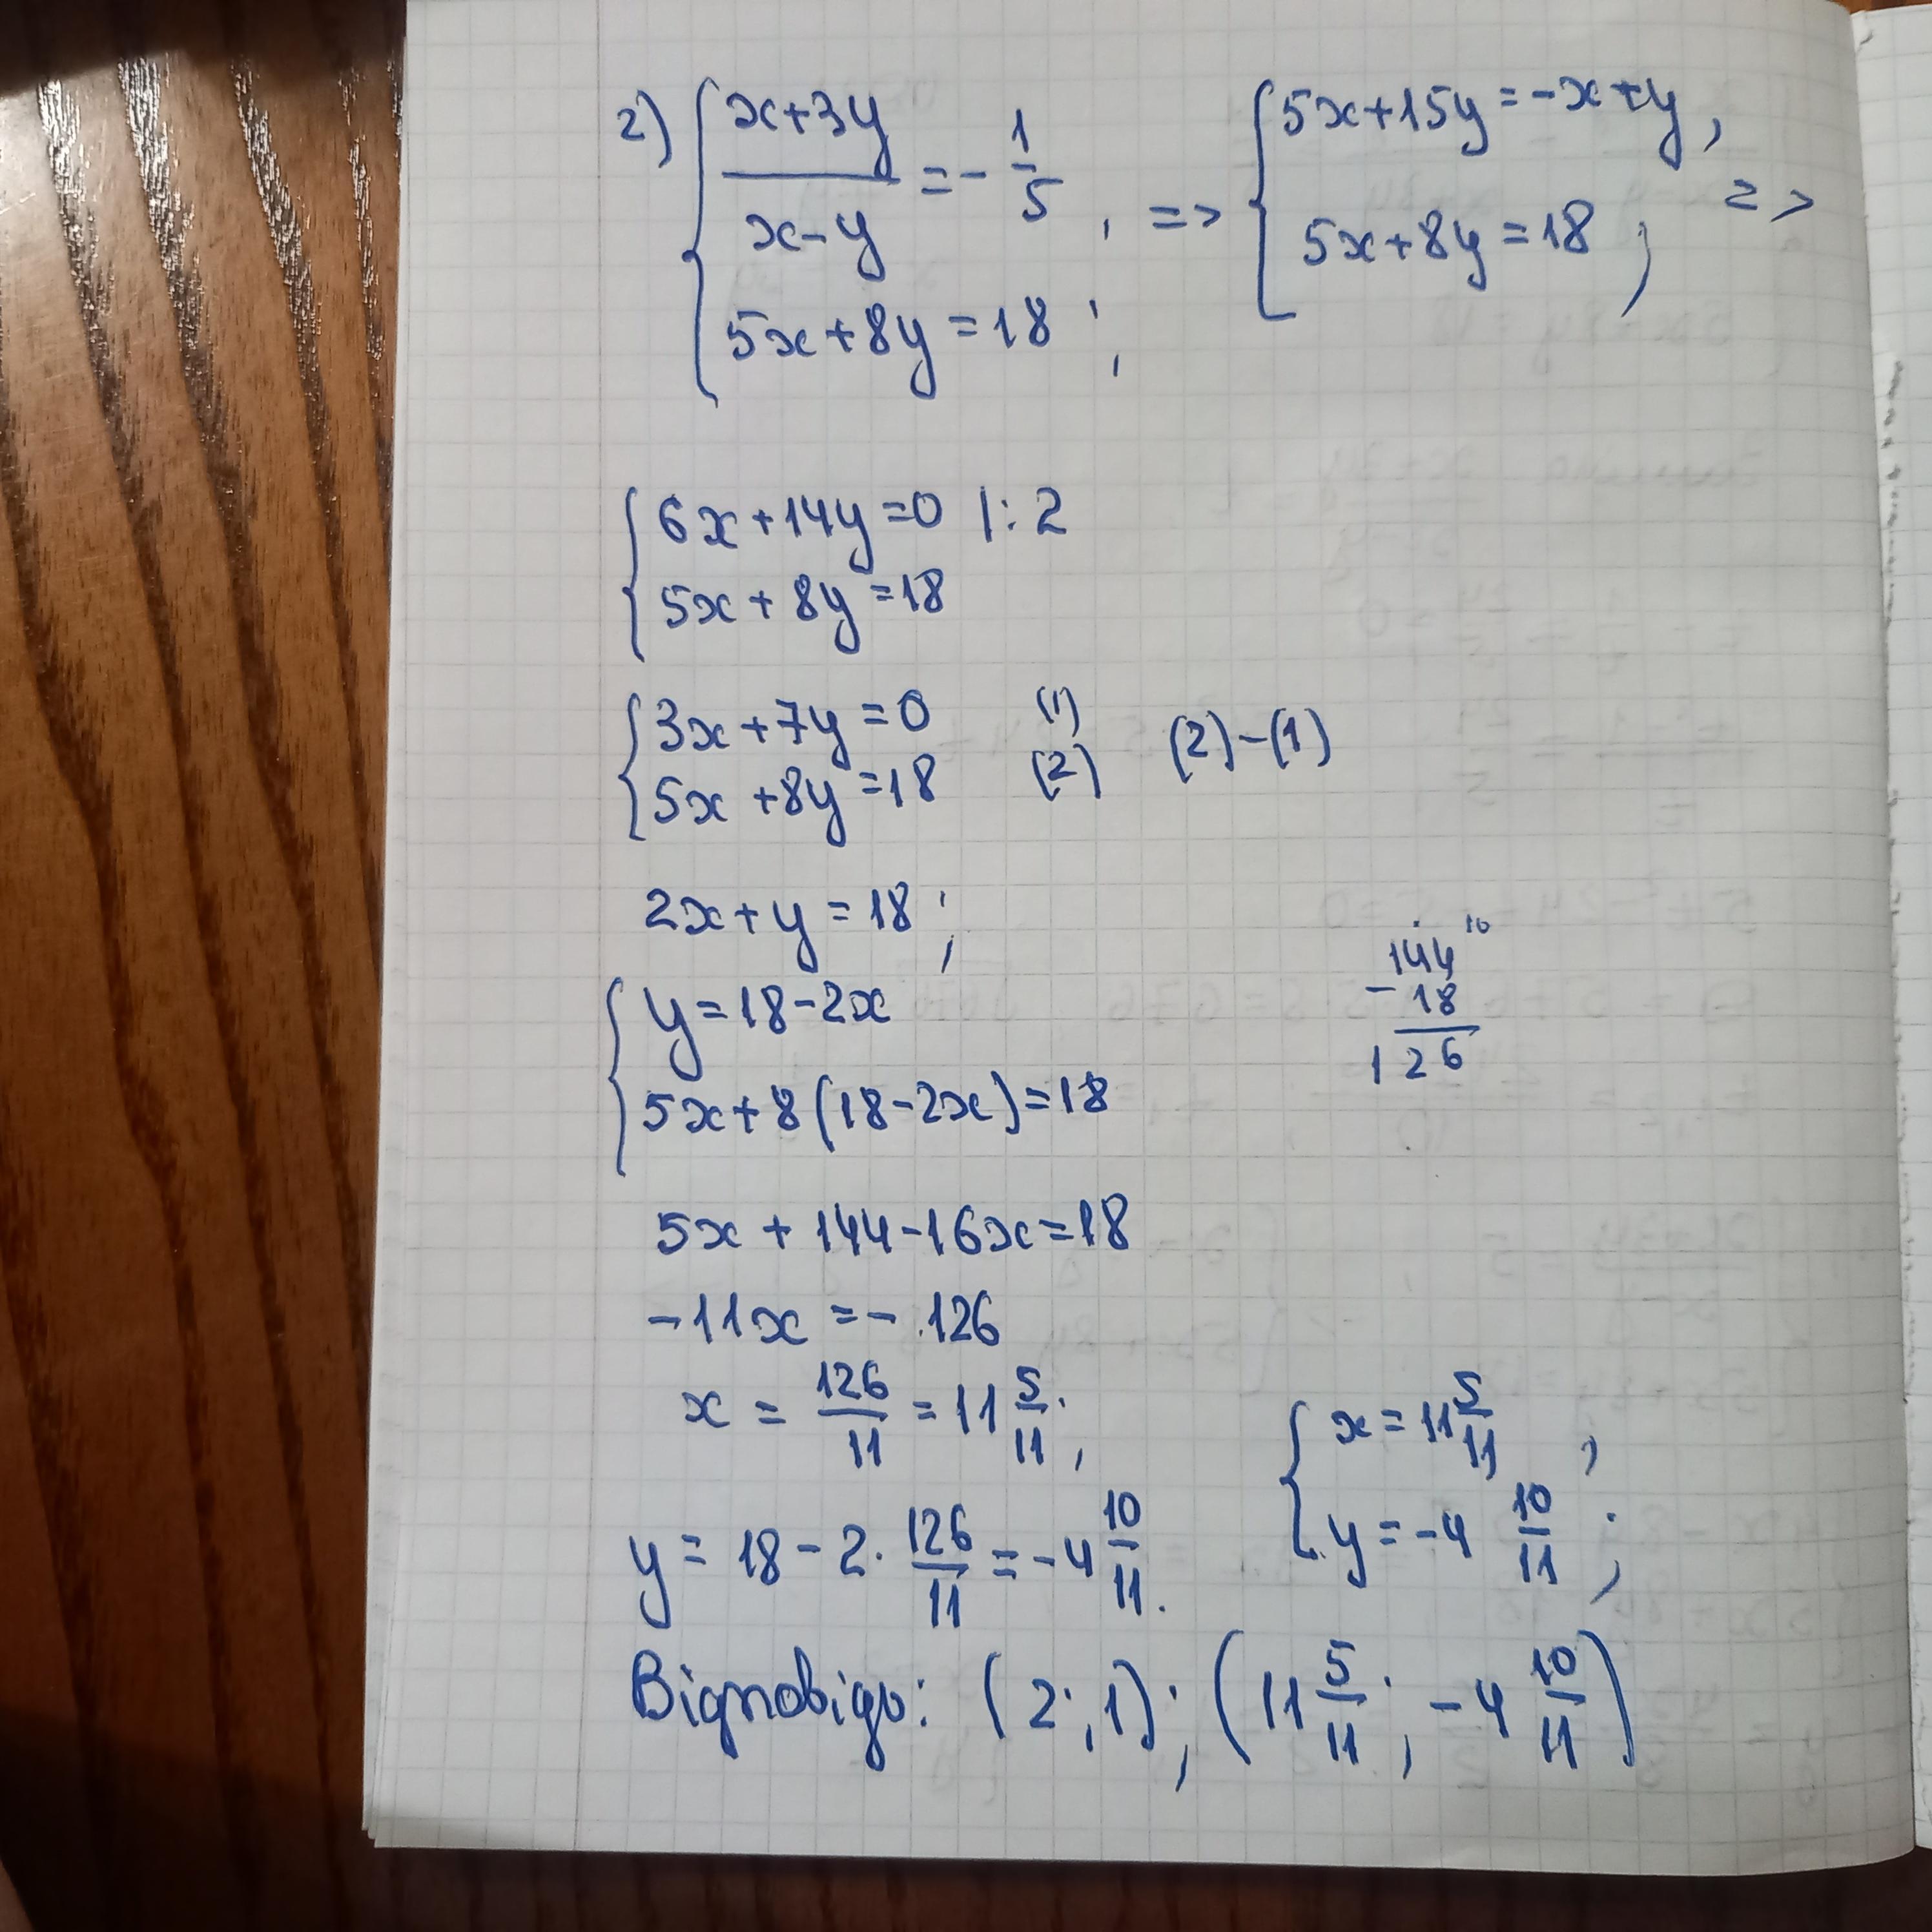 2) { (x+3y)/(x-y) = -1/5, => { 5x+15y=-x+y, =>
5x+8y=18; 5x+8y=18;
{ 6x+14y=0 |:2
5x+8y=18
{ 3x+7y=0 (1) (2)-(1)
5x+8y=18 (2)
2x+y=18;
{ y=18-2x
5x+8(18-2x)=18
144 10
- 18
126
5x+144-16x=18
-11x=-126
x = 126/11 = 11 5/11;
y = 18-2·126/11 = -4 10/11.
{ x=11 5/11,
y=-4 10/11;
Відповідь: (2;1); (11 5/11; -4 10/11)